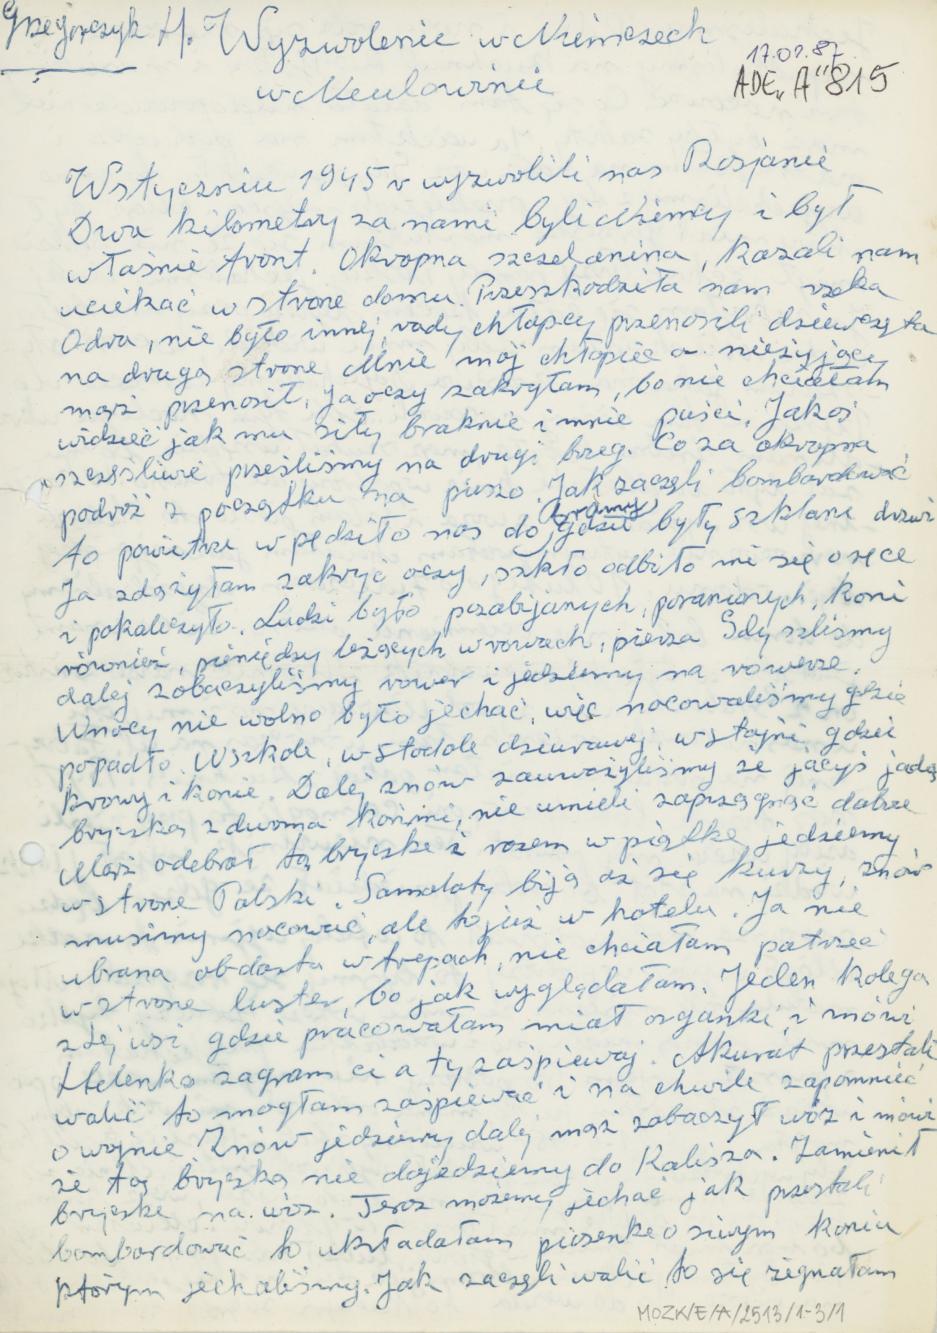 Grzegorczyk H. Wyzwolenie w Niemczech
17.02.87
ADE „A" 815
w Neulowinie
W styczniu 1945 r wyzwolili nas Rosjanie
Dwa kilometry za nami byli Niemcy i był
właśnie front. Okropna szczelanina, kazali nam
uciekać w strone domu. Przeszkodziła nam rzeka
Odra, nie było innej rady chłopcy przenosili dziewczęta
na drugą strone Mnie mój chłopiec a nieżyjący
mąż przenosił, ja oczy zakryłam, bo nie chciałam
widzieć jak mu siły braknie i mnie puści. Jakoś
szczęśliwie prześliśmy na drugi brzeg. Co za okropna
podróż z początku na pieszo. Jak zaczęli bombardować
to powietrze wpędziło nas do bramy gdzie były szklane drzwi
Ja zdążyłam zakryć oczy, szkło odbiło mi się o ręce
i pokaleczyło. Ludzi było pozabijanych, poranionych, koni
również, pieniędzy leżących w rowach, pierza Gdy szliśmy
dalej zobaczyliśmy rower i jedziemy na rowerze.
W nocy nie wolno było jechać, więc nocowaliśmy gdzie
popadło W szkole, w stodole dziurawej, w stajni gdzie
krowy i konie. Dalej znów zauważyliśmy że jacyś jadą
bryczką z dwoma końmi, nie umieli zaprzęgnąć dobrze
Mąż odebrał tą bryczkę i razem w piątkę jedziemy
w strone Polski. Samoloty biją aż się kurzy, znów
musimy nocować, ale to już w hotelu. Ja nie
ubrana obdarta w trepach, nie chciałam patrzeć
w strone luster, bo jak wyglądałam. Jeden kolega
z tej wsi gdzie pracowałam miał organki i mówi
Helenko zagram ci a ty zaśpiewaj. Akurat przestali
walić to mogłam zaśpiewać i na chwile zapomnieć
o wojnie Znów jedziemy dalej mąż zobaczył wóz i mówi
że tą bryczką nie dojedziemy do Kalisza. Zamienił
bryczkę na wóz. Teraz możemy jechać jak przestali
bombardować to układałam piosenke o siwym koniu
którym jechaliśmy. Jak zaczęli walić to się żegnałam
MOZK/E/A/2513/1-3/1